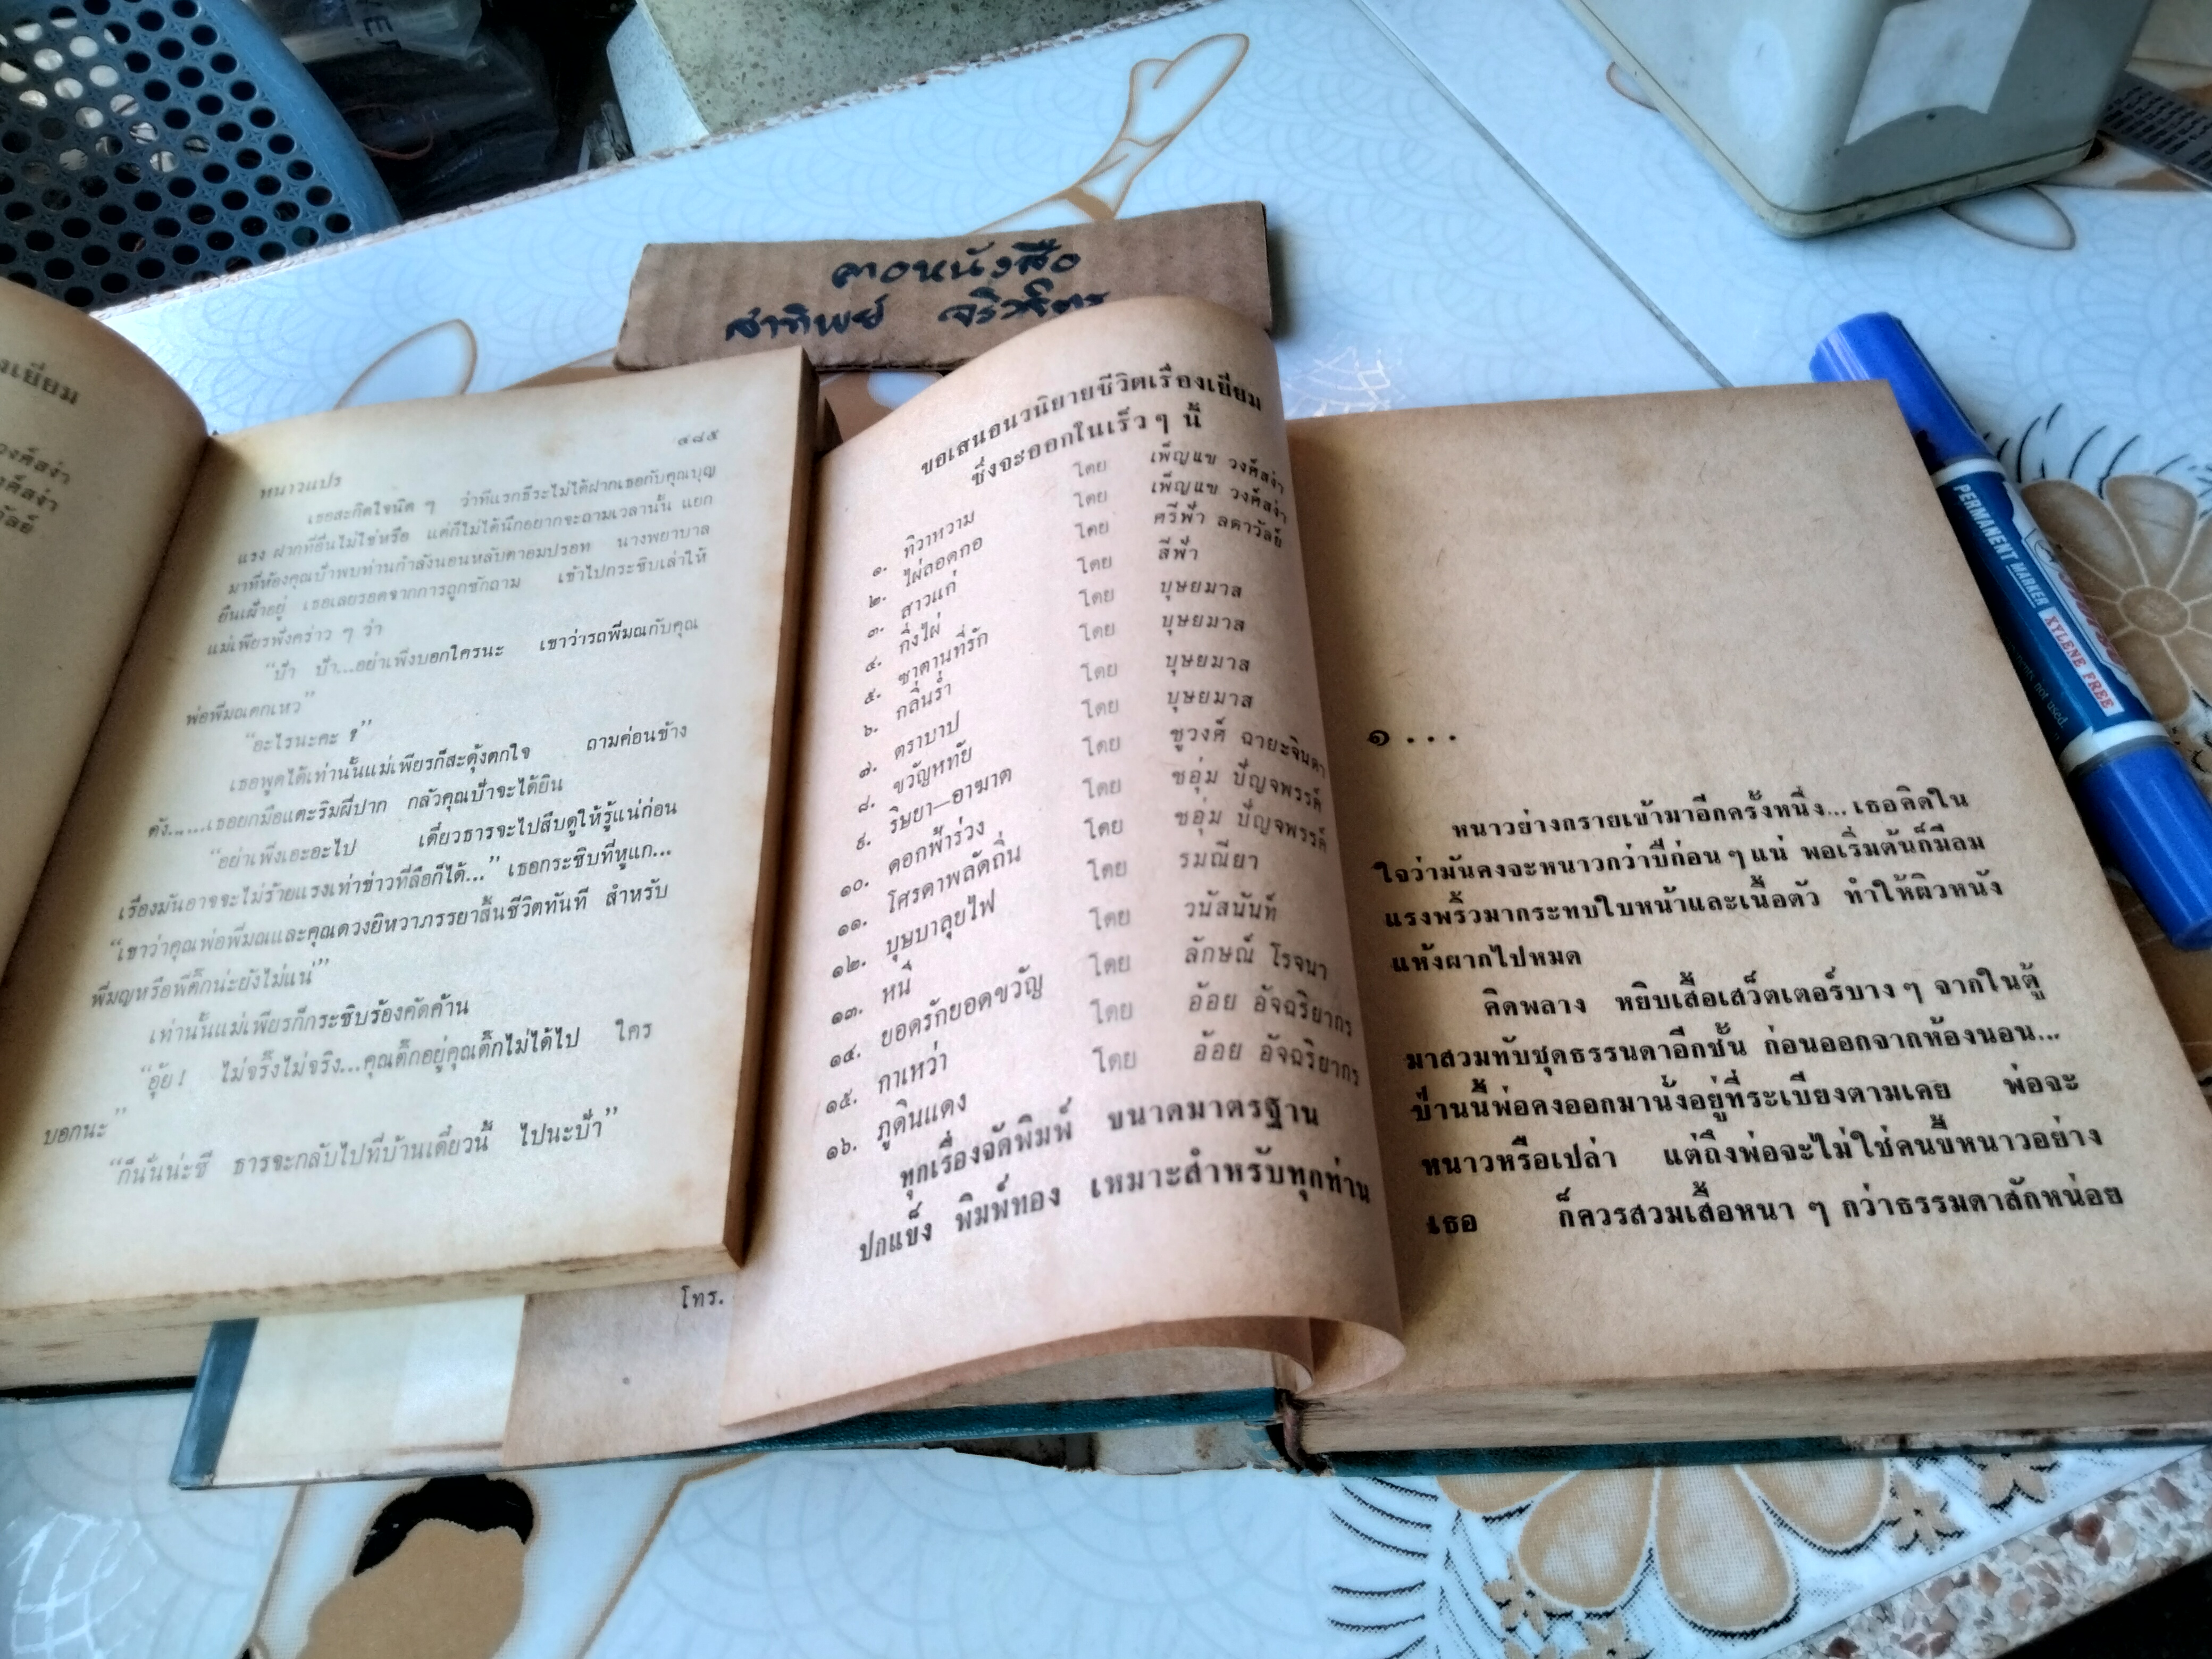 งเยี่ยม
วงศ์สง่า
งศ์สง่า
วัลย์
หนาวแปร
๔๘๕
เธอสะกิดใจนิด ๆ ว่าทีแรกธีระไม่ได้ฝากเธอกับคุณบุญ
แรง ฝากที่อื่นไม่ใช่หรือ แต่ก็ไม่ได้นึกอยากจะถามเวลานั้น แยก
มาที่ห้องคุณป้าพบท่านกำลังนอนหลับคาอมปรอท นางพยาบาล
ยืนเฝ้าอยู่ เธอเลยรอดจากการถูกซักถาม เข้าไปกระซิบเล่าให้
แม่เพียรฟังคร่าว ๆ ว่า
“ป้า ป้า...อย่าเพิ่งบอกใครนะ เขาว่ารถพี่มณกับคุณ
พ่อพี่มณตกเหว”
“อะไรนะคะ ?”
เธอพูดได้เท่านั้นแม่เพียรก็สะดุ้งตกใจ ถามค่อนข้าง
ดัง......เธอยกมือแตะริมฝีปาก กลัวคุณป้าจะได้ยิน
“อย่าเพิ่งเอะอะไป เดี๋ยวธารจะไปสืบดูให้รู้แน่ก่อน
เรื่องมันอาจจะไม่ร้ายแรงเท่าข่าวที่ลือก็ได้...” เธอกระซิบที่หูแก...
“เขาว่าคุณพ่อพี่มณและคุณดวงยิหวาภรรยาสิ้นชีวิตทันที สำหรับ
พี่มญหรือพี่ติ๊กน่ะยังไม่แน่”
เท่านั้นแม่เพียรก็กระซิบร้องคัดค้าน
“อุ้ย ! ไม่จริ๊งไม่จริง...คุณติ๊กอยู่คุณติ๊กไม่ได้ไป ใคร
บอกนะ”
“ก็นั่นน่ะซี ธารจะกลับไปที่บ้านเดี๋ยวนี้ ไปนะป้า”
โทร.
คาอหนังสือ
สาทิพย์
ขอเสนอนวนิยายชีวิตเรื่องเยี่ยม
ซึ่งจะออกในเร็ว ๆ นี้
๑. ทิวาหวาม โดย เพ็ญแข วงศ์สง่า
๒. ไผ่ลอดกอ โดย เพ็ญแข วงศ์สง่า
๓. สาวแก่ โดย ศรีฟ้า ลดาวัลย์
๔. กิ่งไผ่ โดย สีฟ้า
๕. ซาตานที่รัก โดย บุษยมาส
๖. กลิ่นร่ำ โดย บุษยมาส
๗. ตราบาป โดย บุษยมาส
๘. ขวัญหทัย โดย บุษยมาส
๙. ริษยา—อาฆาต โดย ชูวงศ์ ฉายะจินดา
๑๐. ดอกฟ้าร่วง โดย ชอุ่ม ปัญจพรรค์
๑๑. โศรดาพลัดถิ่น โดย ชอุ่ม ปัญจพรรค์
๑๒. บุษบาลุยไฟ โดย รมณียา
๑๓. หนี โดย วนัสนันท์
๑๔. ยอดรักยอดขวัญ โดย ลักษณ์ โรจนา
๑๕. กาเหว่า โดย อ้อย อัจฉริยากร
๑๖. ภูดินแดง โดย อ้อย อัจฉริยากร
ทุกเรื่องจัดพิมพ์ ขนาดมาตรฐาน
ปกแข็ง พิมพ์ทอง เหมาะสำหรับทุกท่าน
๑ . . .
หนาวย่างกรายเข้ามาอีกครั้งหนึ่ง...เธอคิดใน
ใจว่ามันคงจะหนาวกว่าปีก่อน ๆ แน่ พอเริ่มต้นก็มีลม
แรงพริ้วมากระทบใบหน้าและเนื้อตัว ทำให้ผิวหนัง
แห้งผากไปหมด
คิดพลาง หยิบเสื้อเสว็ตเตอร์บาง ๆ จากในตู้
มาสวมทับชุดธรรมดาอีกชั้น ก่อนออกจากห้องนอน...
ป่านนี้พ่อคงออกมานั่งอยู่ที่ระเบียงตามเคย พ่อจะ
หนาวหรือเปล่า แต่ถึงพ่อจะไม่ใช่คนขี้หนาวอย่าง
เธอ ก็ควรสวมเสื้อหนา ๆ กว่าธรรมดาสักหน่อย
PERMANENT MARKER XYLENE FREE